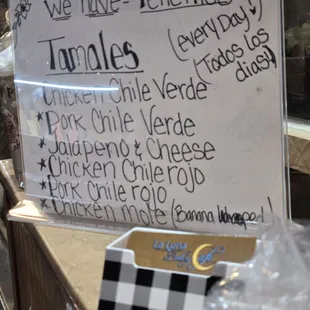 We have-
Tamales
(everyDay!
(Todos los
dias)
Chicken Chile Verde
*Pork Chile Verde
*Jalapeño & Cheese
*Chicken Chile rojo
*Pork Chile rojo
*Chicken mole (Banana Wrapped)